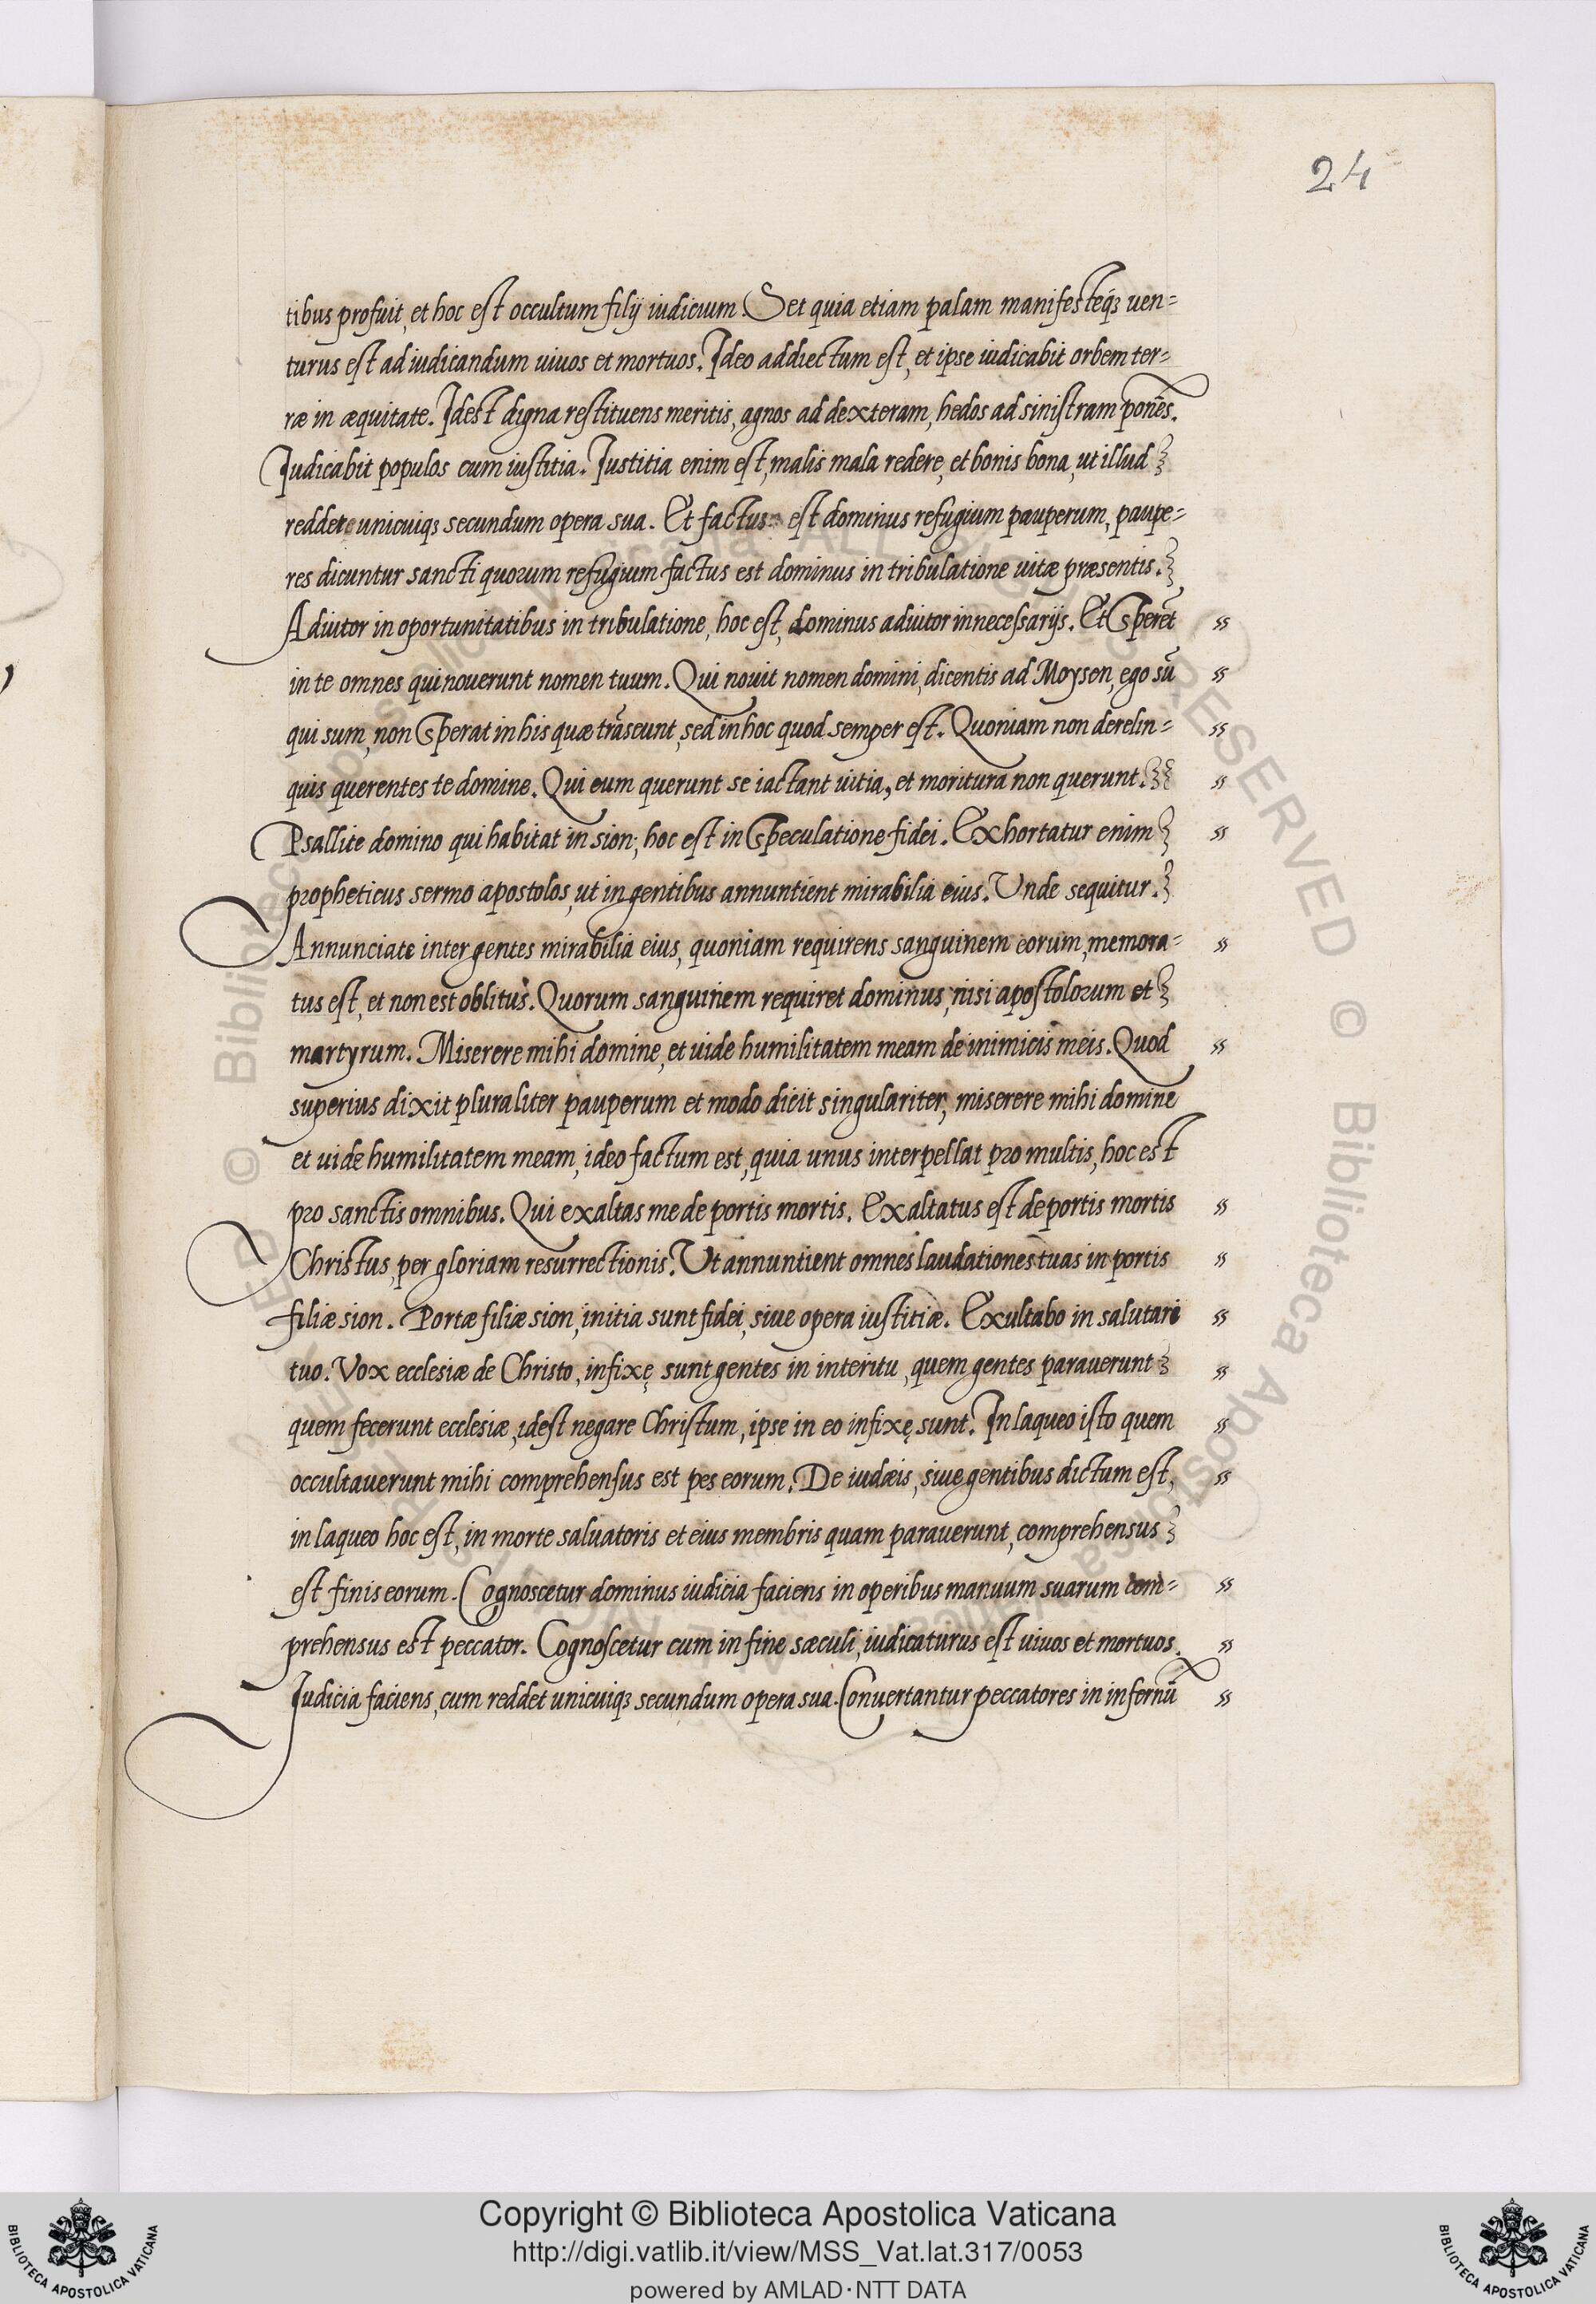 24
tibus profuit, et hoc est occultum filij iudicium. Set quia etiam palam manifesteq́ꝫ uen=
turus est ad iudicandum uiuos et mortuos. Ideo addiectum est, et ipse iudicabit orbem ter=
ræ in æquitate. Idest digna restituens meritis, agnos ad dexteram, hedos ad sinistram ponẽs.
Judicabit populos cum iustitia. Iustitia enim est, malis mala redere, et bonis bona, ut illud
reddere unicuiqꝫ secundum opera sua. Et factus est dominus refugium pauperum, paupe=
res dicuntur sancti quorum refugium factus est dominus in tribulatione uitæ præsentis.
Adiutor in oportunitatibus in tribulatione, hoc est, dominus adiutor in necessarijs. Et sperẽt
in te omnes qui nouerunt nomen tuum. Qui nouit nomen domini, dicentis ad Moysen, ego sũ
qui sum, non sperat in his quæ trãseunt, sed in hoc quod semper est. Quoniam non derelin=
quis querentes te domine. Qui eum querunt se iactant uitia, et moritura non querunt.
Psallite domino qui habitat in sion; hoc est in speculatione fidei. Exhortatur enim
propheticus sermo apostolos, ut in gentibus annuntient mirabilia eius. Unde sequitur.
Annunciate inter gentes mirabilia eius, quoniam requirens sanguinem eorum, memora=
tus est, et non est oblitus. Quorum sanguinem requiret dominus, nisi apostolorum et
martyrum. Miserere mihi domine, et uide humilitatem meam de inimicis meis. Quod
superius dixit pluraliter pauperum et modo dicit singulariter, miserere mihi domine
et uide humilitatem meam, ideo factum est, quia unus interpellat pro multis, hoc est
pro sanctis omnibus. Qui exaltas me de portis mortis. Exaltatus est de portis mortis
Christus, per gloriam resurrectionis. Ut annuntient omnes laudationes tuas in portis
filiæ sion. Portæ filiæ sion, initia sunt fidei, siue opera iustitiæ. Exultabo in salutari
tuo. Vox ecclesiæ de Christo, infixę sunt gentes in interitu, quem gentes parauerunt
quem fecerunt ecclesiæ, idest negare Christum, ipse in eo infixę sunt. In laqueo isto quem
occultauerunt mihi comprehensus est pes eorum. De iudæis, siue gentibus dictum est,
in laqueo hoc est, in morte saluatoris et eius membris quam parauerunt, comprehensus
est finis eorum. Cognoscetur dominus iudicia faciens in operibus manuum suarum com=
prehensus est peccator. Cognoscetur cum in fine sæculi, iudicaturus est uiuos et mortuos.
Judicia faciens, cum reddet unicuiqꝫ secundum opera sua. Conuertantur peccatores in infernũ
Copyright © Biblioteca Apostolica Vaticana
http://digi.vatlib.it/view/MSS_Vat.lat.317/0053
powered by AMLAD·NTT DATA
BIBLIOTECA APOSTOLICA VATICANA
BIBLIOTECA APOSTOLICA VATICANA